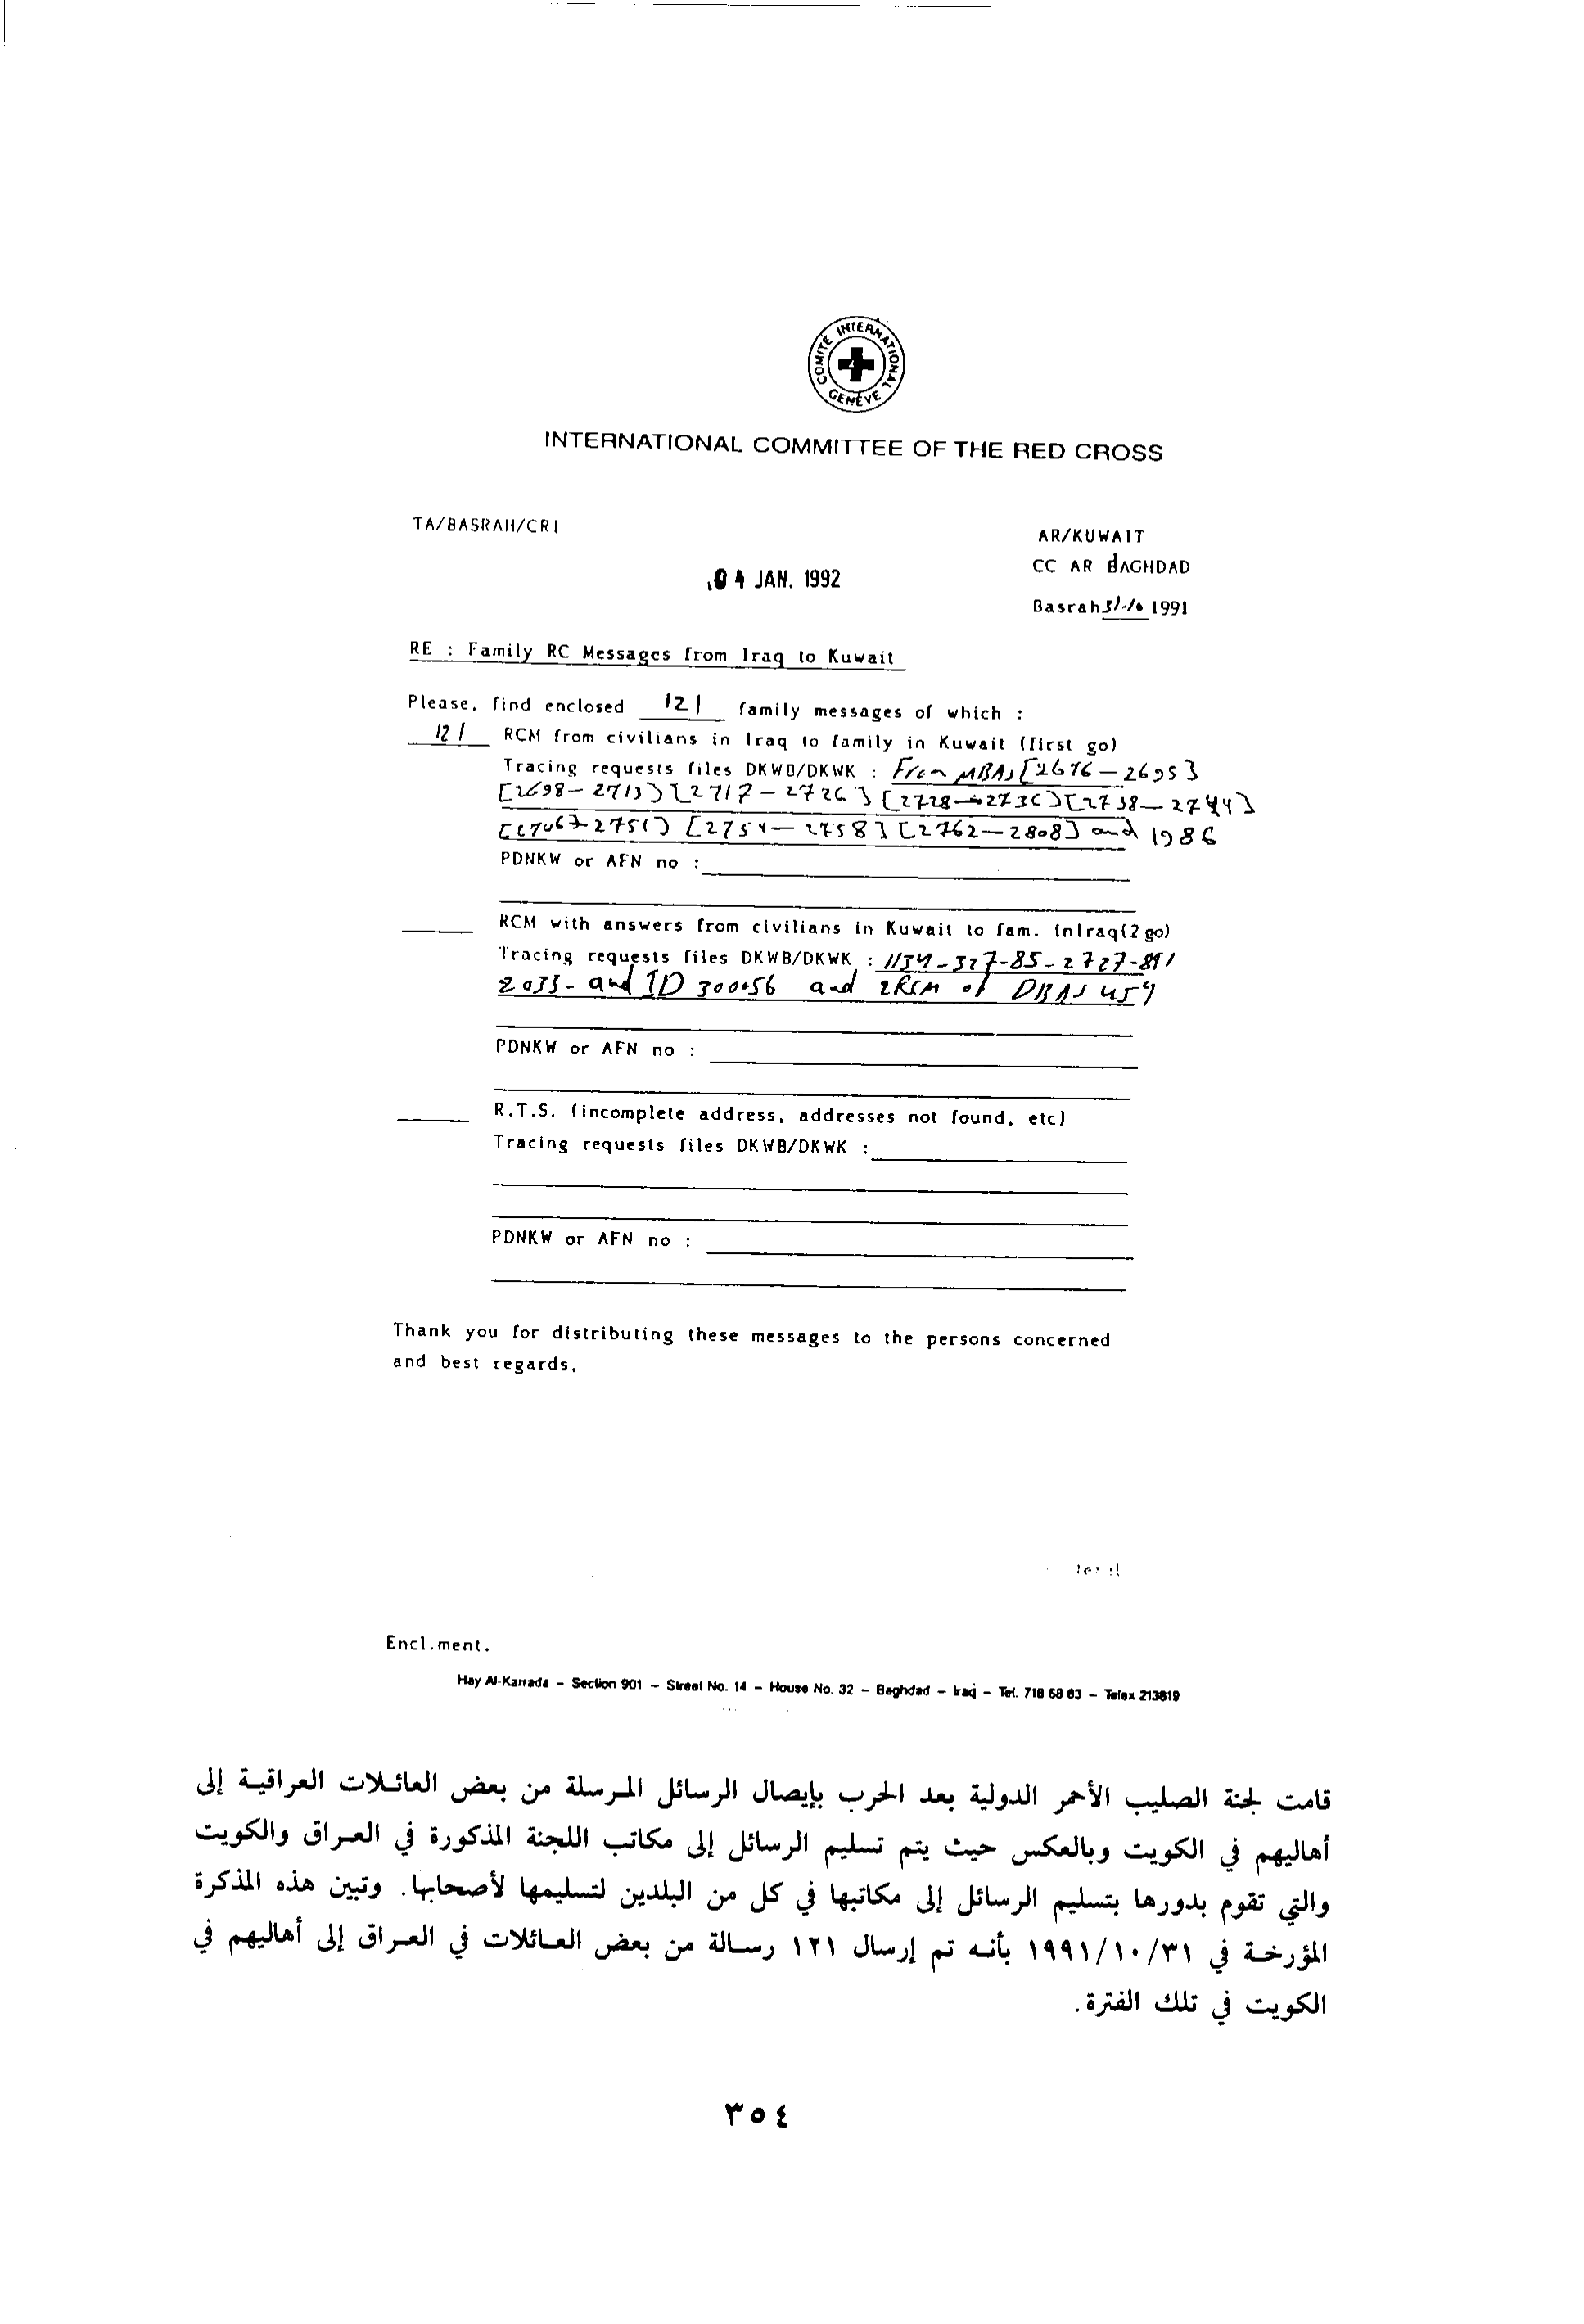 COMITÉ INTERNATIONAL GENÈVE
INTERNATIONAL COMMITTEE OF THE RED CROSS
TA/BASRAH/CRI
AR/KUWAIT
CC AR BAGHDAD
04 JAN. 1992
Basrah 31-10 1991
RE : Family RC Messages from Iraq to Kuwait
Please, find enclosed 121 family messages of which :
121 RCM from civilians in Iraq to family in Kuwait (first go)
Tracing requests files DKWB/DKWK : From MBAS [2676-2695]
[2698-2713] [2717-2726] [2728-2736] [2738-2744]
2751] [2754-2758] [2762-2808] and 1986
PDNKW or AFN no :
RCM with answers from civilians in Kuwait to fam. inIraq(2 go)
Tracing requests files DKWB/DKWK : 1134-327-85-2727-891
2033- and ID 300056 and 2RCM of DBAS 459
PDNKW or AFN no :
R.T.S. (incomplete address, addresses not found, etc)
Tracing requests files DKWB/DKWK :
PDNKW or AFN no :
Thank you for distributing these messages to the persons concerned
and best regards,
Encl.ment.
Hay Al-Karrada – Section 901 – Street No. 14 – House No. 32 – Baghdad – Iraq – Tel. 718 68 83 – Telex 213819
قامت لجنة الصليب الأحمر الدولية بعد الحرب بإيصال الرسائل المرسلة من بعض العائلات العراقية إلى
أهاليهم في الكويت وبالعكس حيث يتم تسليم الرسائل إلى مكاتب اللجنة المذكورة في العراق والكويت
والتي تقوم بدورها بتسليم الرسائل إلى مكاتبها في كل من البلدين لتسليمها لأصحابها. وتبين هذه المذكرة
المؤرخة في ١٩٩١/١٠/٣١ بأنه تم إرسال ١٢١ رسالة من بعض العائلات في العراق إلى أهاليهم في
الكويت في تلك الفترة.
٣٥٤